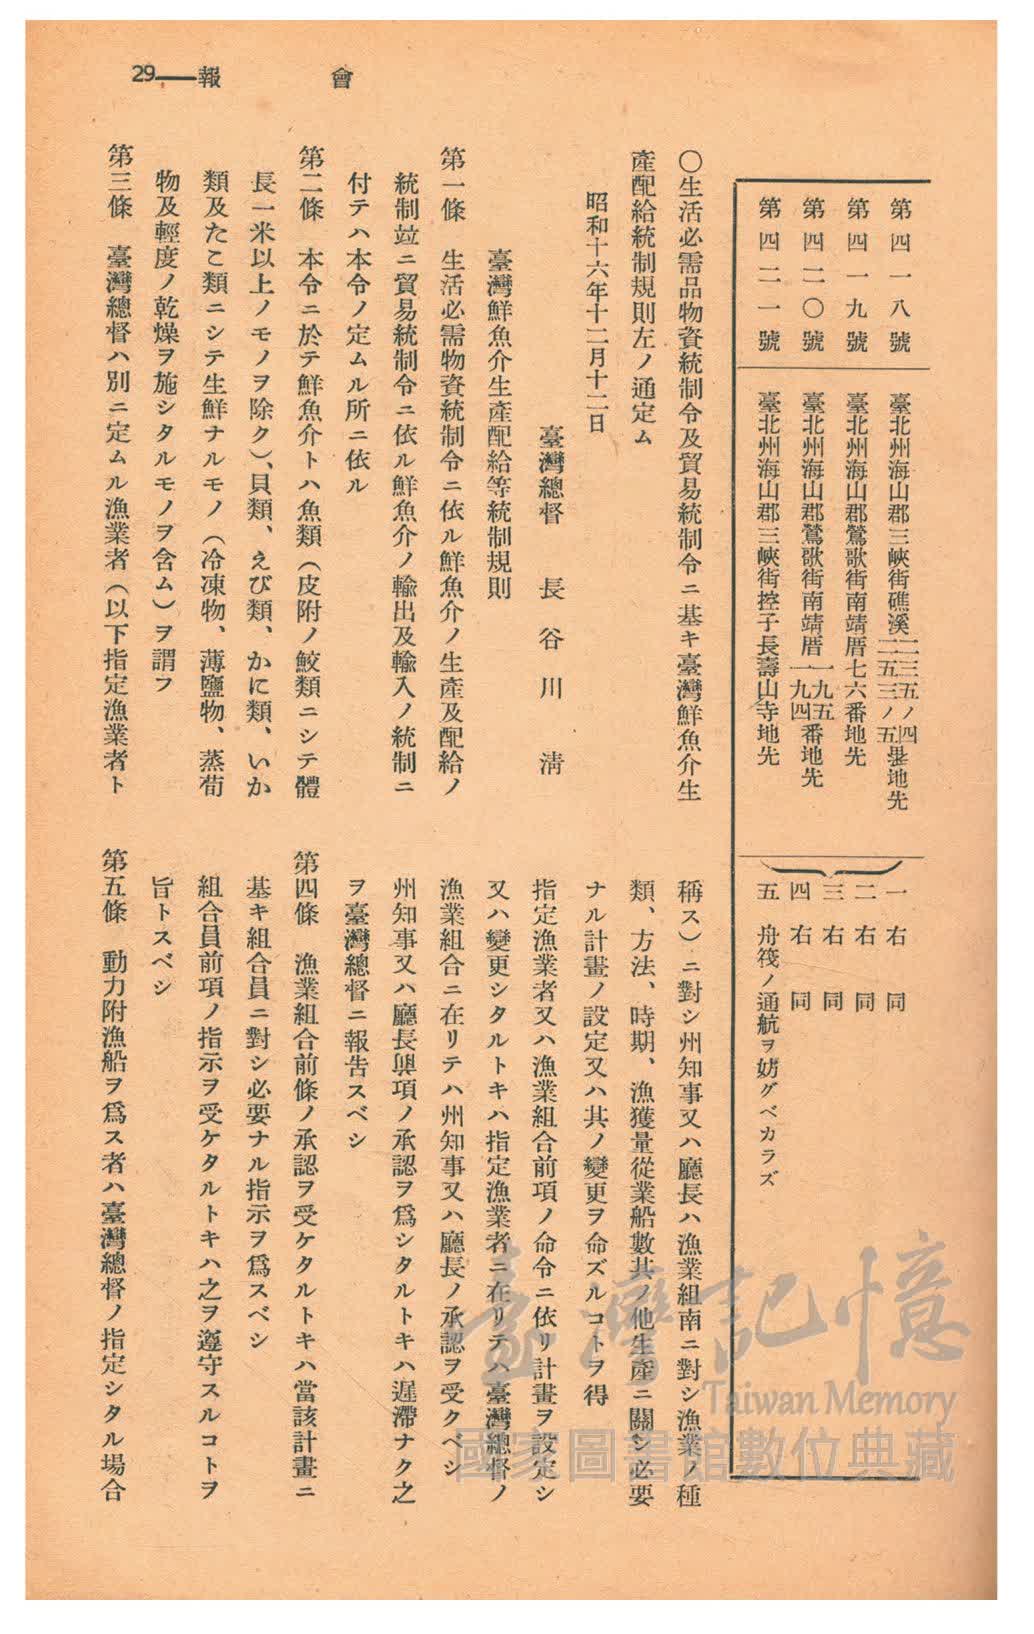 29——報　會
第四一八號　臺北州海山郡三峽街礁溪二三五ノ四 二五三ノ五番地先　一　右　同
第四一九號　臺北州海山郡鶯歌街南靖厝七六番地先　二　右　同
第四二〇號　臺北州海山郡鶯歌街南靖厝一九五 一九四番地先　三　右　同
四　右　同
第四二一號　臺北州海山郡三峽街控子長壽山寺地先　五　舟筏ノ通航ヲ妨グベカラズ
〇生活必需品物資統制令及貿易統制令ニ基キ臺灣鮮魚介生
產配給統制規則左ノ通定ム
昭和十六年十二月十二日
臺灣總督　長谷川　淸
臺灣鮮魚介生產配給等統制規則
第一條　生活必需物資統制令ニ依ル鮮魚介ノ生產及配給ノ
統制竝ニ貿易統制令ニ依ル鮮魚介ノ輸出及輸入ノ統制ニ
付テハ本令ノ定ムル所ニ依ル
第二條　本令ニ於テ鮮魚介トハ魚類（皮附ノ鮫類ニシテ體
長一米以上ノモノヲ除ク）、貝類、えび類、かに類、いか
類及たこ類ニシテ生鮮ナルモノ（冷凍物、薄鹽物、蒸荀
物及輕度ノ乾燥ヲ施シタルモノヲ含ム）ヲ謂フ
第三條　臺灣總督ハ別ニ定ムル漁業者（以下指定漁業者ト
稱ス）ニ對シ州知事又ハ廳長ハ漁業組南ニ對シ漁業ノ種
類、方法、時期、漁獲量從業船數其ノ他生產ニ關シ必要
ナル計畫ノ設定又ハ其ノ變更ヲ命ズルコトヲ得
指定漁業者又ハ漁業組合前項ノ命令ニ依リ計畫ヲ設定シ
又ハ變更シタルトキハ指定漁業者ニ在リテハ臺灣總督ノ
漁業組合ニ在リテハ州知事又ハ廳長ノ承認ヲ受クベシ
州知事又ハ廳長與項ノ承認ヲ爲シタルトキハ遲滯ナク之
ヲ臺灣總督ニ報告スベシ
第四條　漁業組合前條ノ承認ヲ受ケタルトキハ當該計畫ニ
基キ組合員ニ對シ必要ナル指示ヲ爲スベシ
組合員前項ノ指示ヲ受ケタルトキハ之ヲ遵守スルコトヲ
旨トスベシ
第五條　動力附漁船ヲ爲ス者ハ臺灣總督ノ指定シタル場合
臺灣記憶
Taiwan Memory
國家圖書館數位典藏